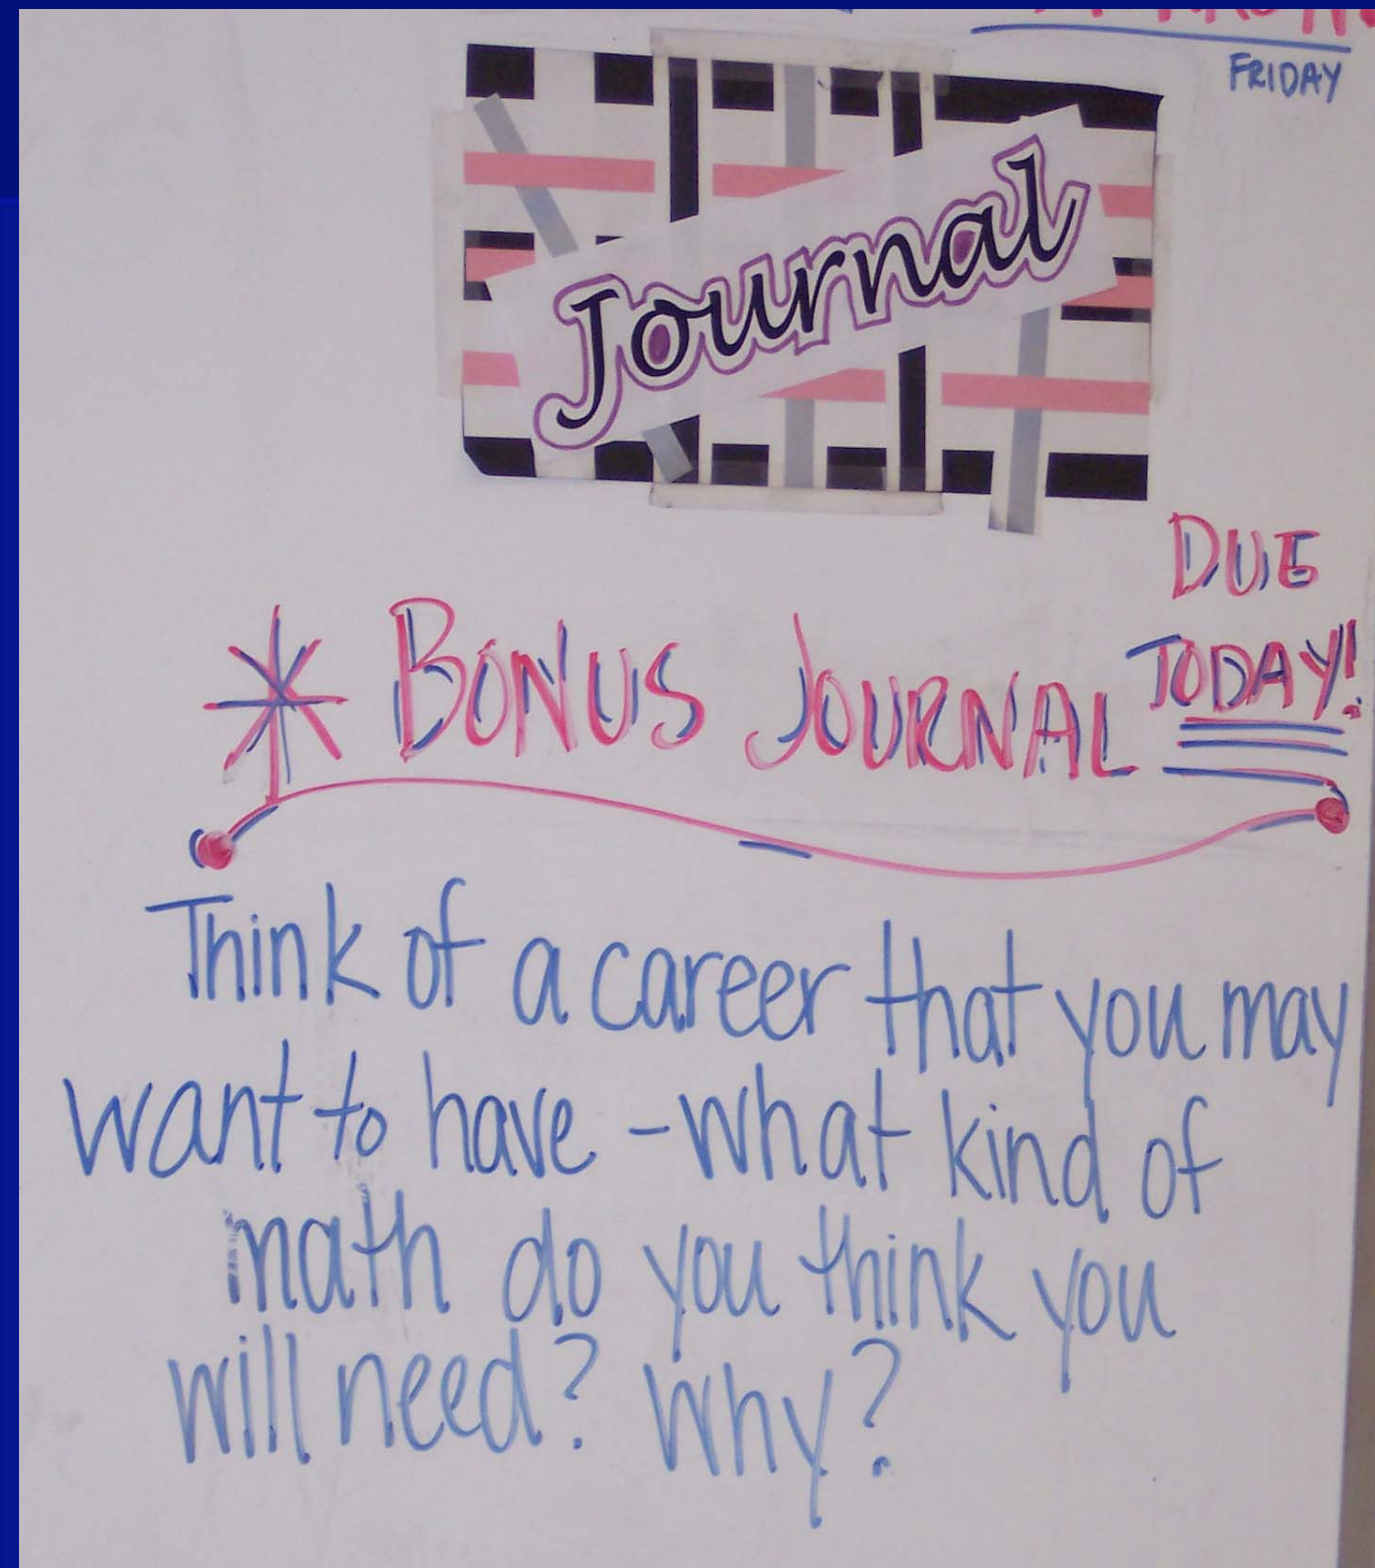 FRIDAY
Journal
DUE
TODAY!
* BONUS JOURNAL
Think of a career that you may
want to have - what kind of
math do you think you
will need? Why?